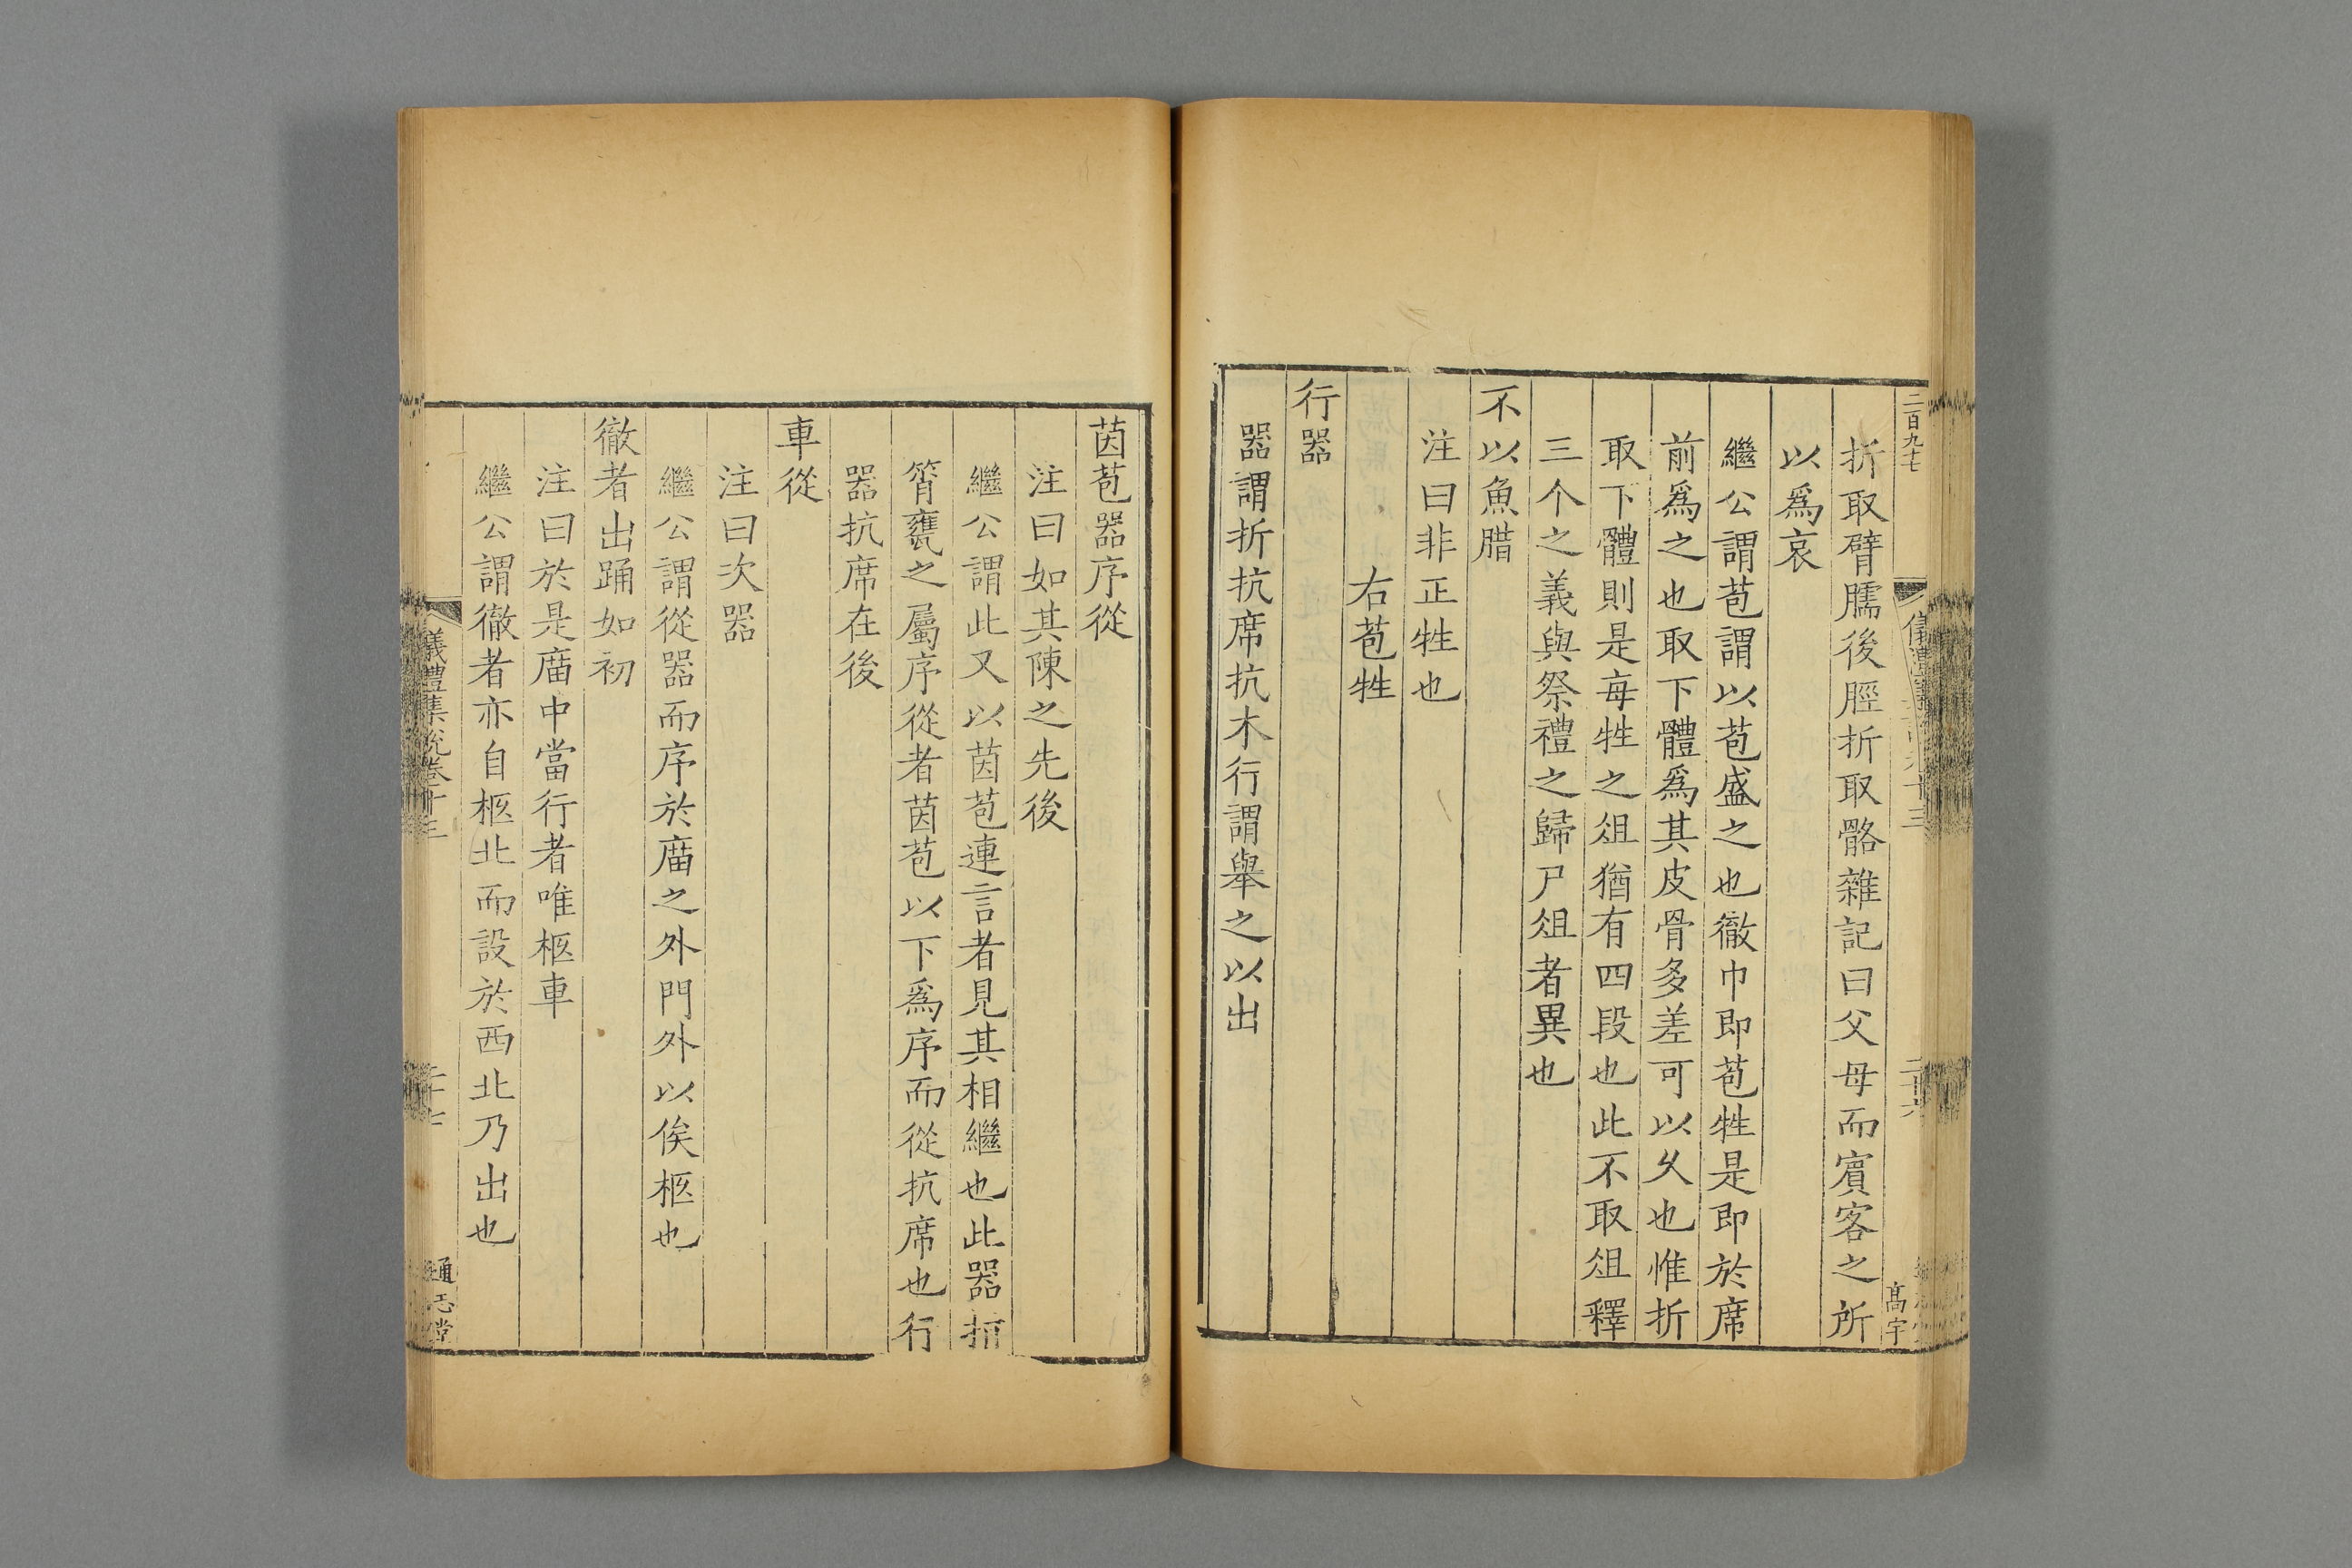 二百九十七
高宇
折取臂臑後脛折取骼雜記曰父母而賓客之所
以爲哀
繼公謂苞謂以苞盛之也徹巾即苞牲是即於席
前爲之也取下體爲其皮骨多差可以久也惟折
取下體則是每牲之俎猶有四段也此不取俎釋
三个之義與祭禮之歸尸俎者異也
不以魚腊
注曰非正牲也
右苞牲
行器
器謂折抗席抗木行謂舉之以出
茵苞器序從
注曰如其陳之先後
繼公謂此又以茵苞連言者見其相繼也此器指
筲甕之屬序從者茵苞以下爲序而從抗席也行
器抗席在後
車從
注曰次器
繼公謂從器而序於庿之外門外以俟柩也
徹者出踊如初
注曰於是庿中當行者唯柩車
繼公謂徹者亦自柩北而設於西北乃出也
儀禮集說卷十三
二十七
通志堂